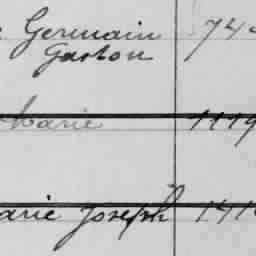 Germain 74
Gaston
Marie 1119
arie Joseph 141